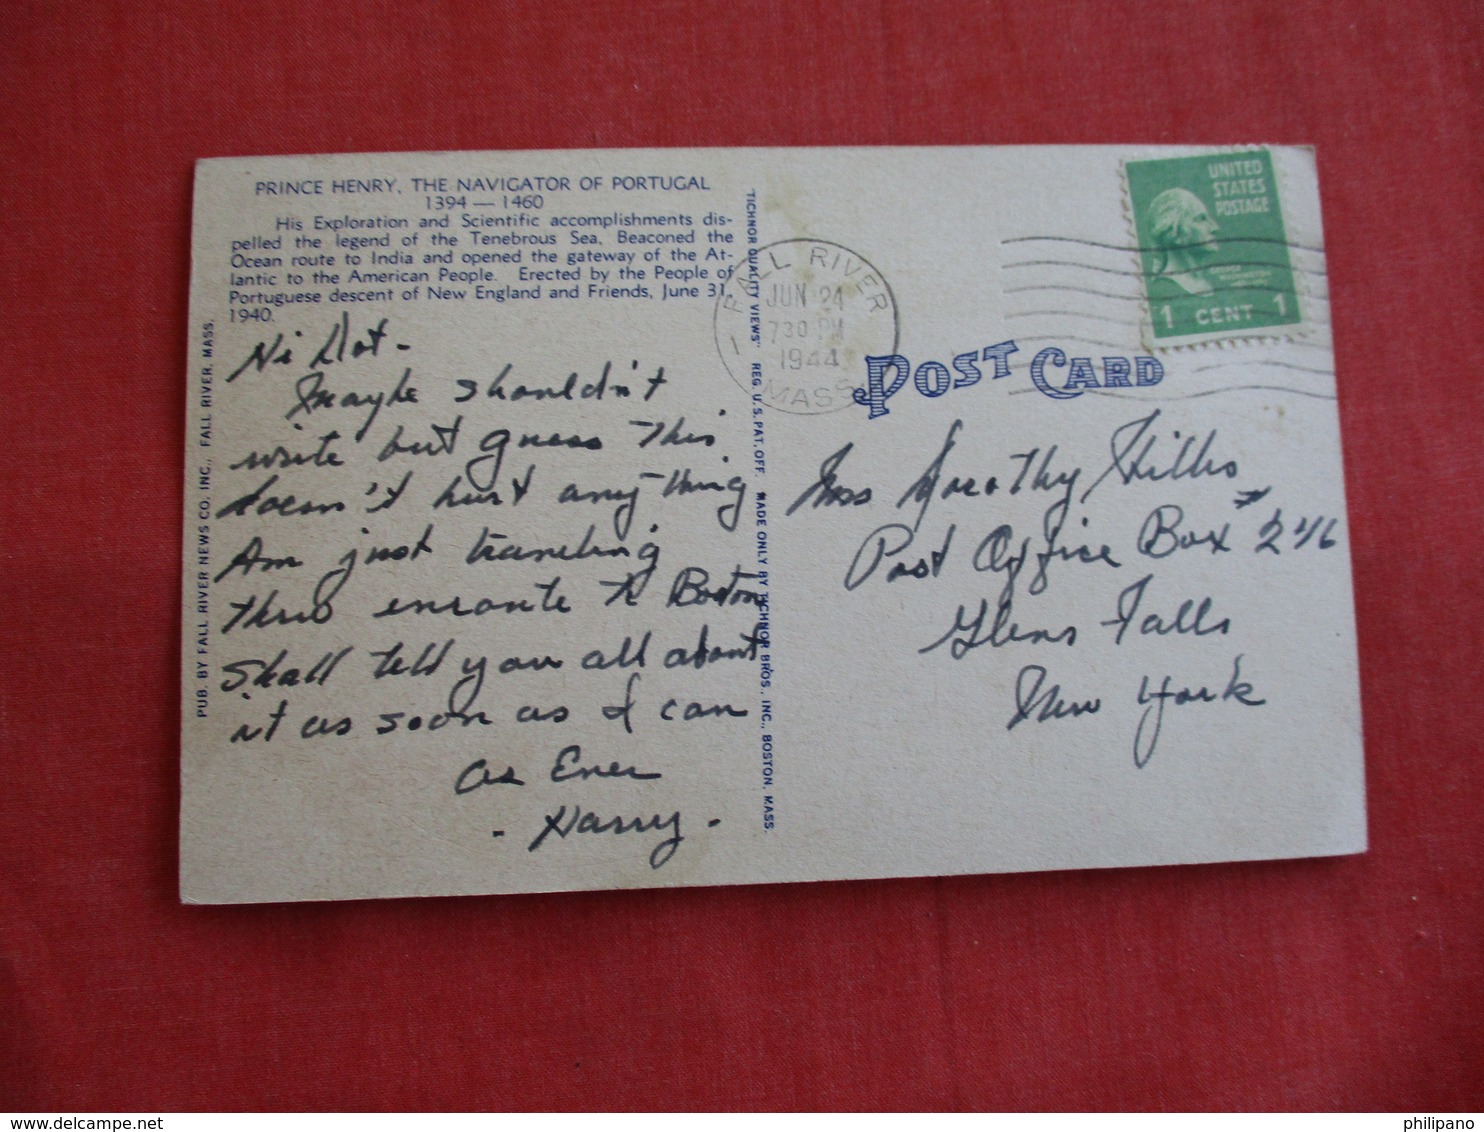 PRINCE HENRY, THE NAVIGATOR OF PORTUGAL
1394 — 1460
His Exploration and Scientific accomplishments dis-
pelled the legend of the Tenebrous Sea, Beaconed the
Ocean route to India and opened the gateway of the At-
lantic to the American People. Erected by the People of
Portuguese descent of New England and Friends, June 31,
1940.
Hi Dot -
Maybe shouldn't
write but guess this
doesn't hurt anything
Am just traveling
thru enroute to Boston
Shall tell you all about
it as soon as I can
As Ever
- Harry -
PUB. BY FALL RIVER NEWS CO. INC., FALL RIVER, MASS.
"TICHNOR QUALITY VIEWS" REG. U. S. PAT. OFF. MADE ONLY BY TICHNOR BROS., INC., BOSTON, MASS.
FALL RIVER
JUN 24
7 30 PM
1944
MASS.
UNITED
STATES
POSTAGE
GEORGE
WASHINGTON
1 CENT 1
POST CARD
Miss Dorothy Hillis
Post Office Box # 246
Glens Falls
New York
philipano
delcampe.net